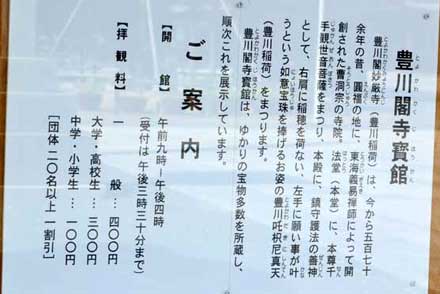 豊川閣寺寳館
豊川閣妙厳寺（豊川稲荷）は、今から五百七十
余年の昔、圓福の地に、東海義易禅師によって開
創された曹洞宗の寺院。法堂（本堂）に、本尊千
手観世音菩薩をまつり、本殿に、鎮守護法の善神
として、右肩に稲穂を荷ない、左手に願い事が叶
うという如意宝珠を捧げるお姿の豊川吒枳尼真天
（豊川稲荷）をまつります。
豊川閣寺寳館は、ゆかりの宝物多数を所蔵し、
順次これを展示しています。
ご案内
【開館】午前九時ー午後四時
（受付は午後三時三十分まで）
【拝観料】一般…四〇〇円
大学・高校生…三〇〇円
中学・小学生…一〇〇円
［団体二〇名以上一割引］